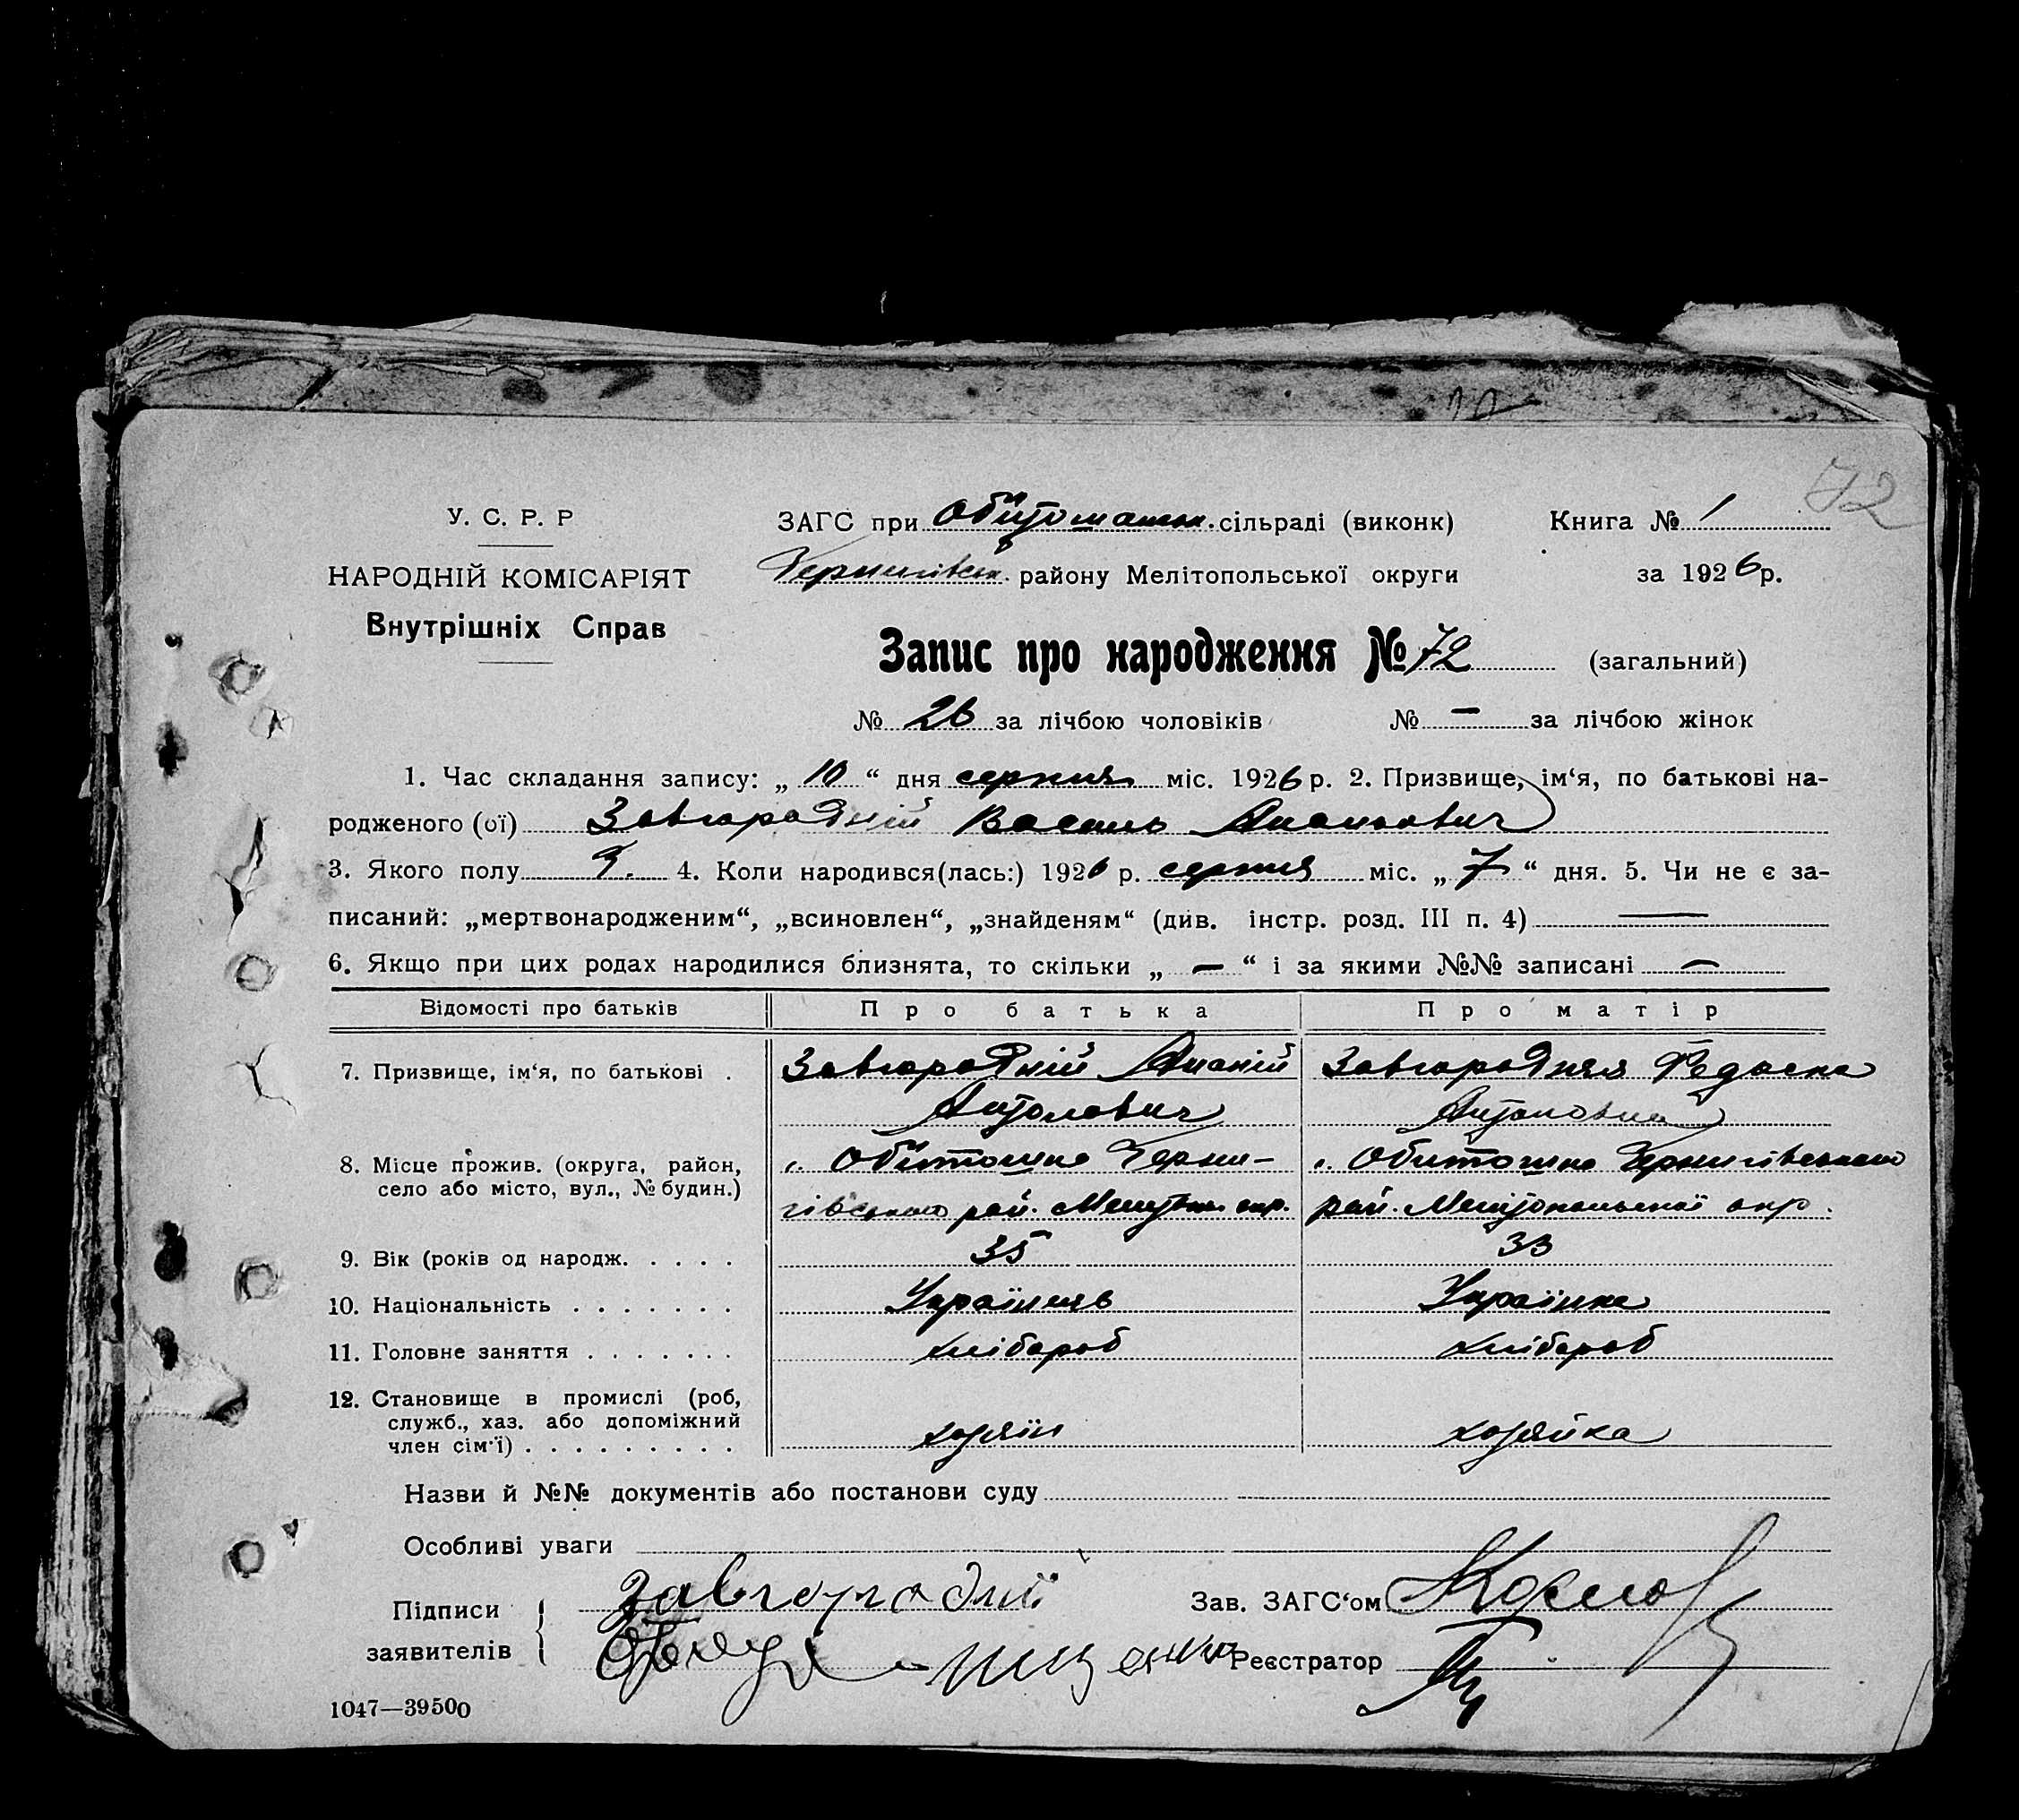 72
У. С. Р. Р
НАРОДНІЙ КОМІСАРІЯТ
Внутрішніх Справ
ЗАГС при Обиточанськ. сільраді (виконк) Книга № 1
Чернигівськ. району Мелітопольської округи за 1926 р.
Запис про народження № 72 (загальний)
№ 26 за лічбою чоловіків № — за лічбою жінок
1. Час складання запису: „ 10 “ дня серпня міс. 1926 р. 2. Призвище, ім‘я, по батькові на-
родженого (ої) Завгородній Василь Ананьович
3. Якого полу Ч. 4. Коли народився(лась:) 1926 р. серпня міс. „ 7 “ дня. 5. Чи не є за-
писаний: „мертвонародженим“, „всиновлен“, „знайденям“ (див. інстр. розд. III п. 4) —
6. Якщо при цих родах народилися близнята, то скільки „ — “ і за якими №№ записані —
Відомості про батьків Про батька Про матір
7. Призвище, ім‘я, по батькові . Завгородній Ананій Завгородняя Федосна
Антонович Антоновна
8. Місце прожив. (округа, район, с. Обиточна Черни- с. Обиточна Чернигівського
село або місто, вул., № будин.) гівського рай. Мелітоп. окр. рай. Мелітопольської окр.
9. Вік (років од народж. . . . . 35 33
10. Національність . . . . . . . Українець Українка
11. Головне заняття . . . . . . . хлібороб хлібороб
12. Становище в промислі (роб,
служб., хаз. або допоміжний
член сім‘ї) . . . . . . . . . хозяїн хозяйка
Назви й №№ документів або постанови суду
Особливі уваги
Підписи Завгородній Зав. ЗАГС‘ом
заявителів Реєстратор
1047—39500